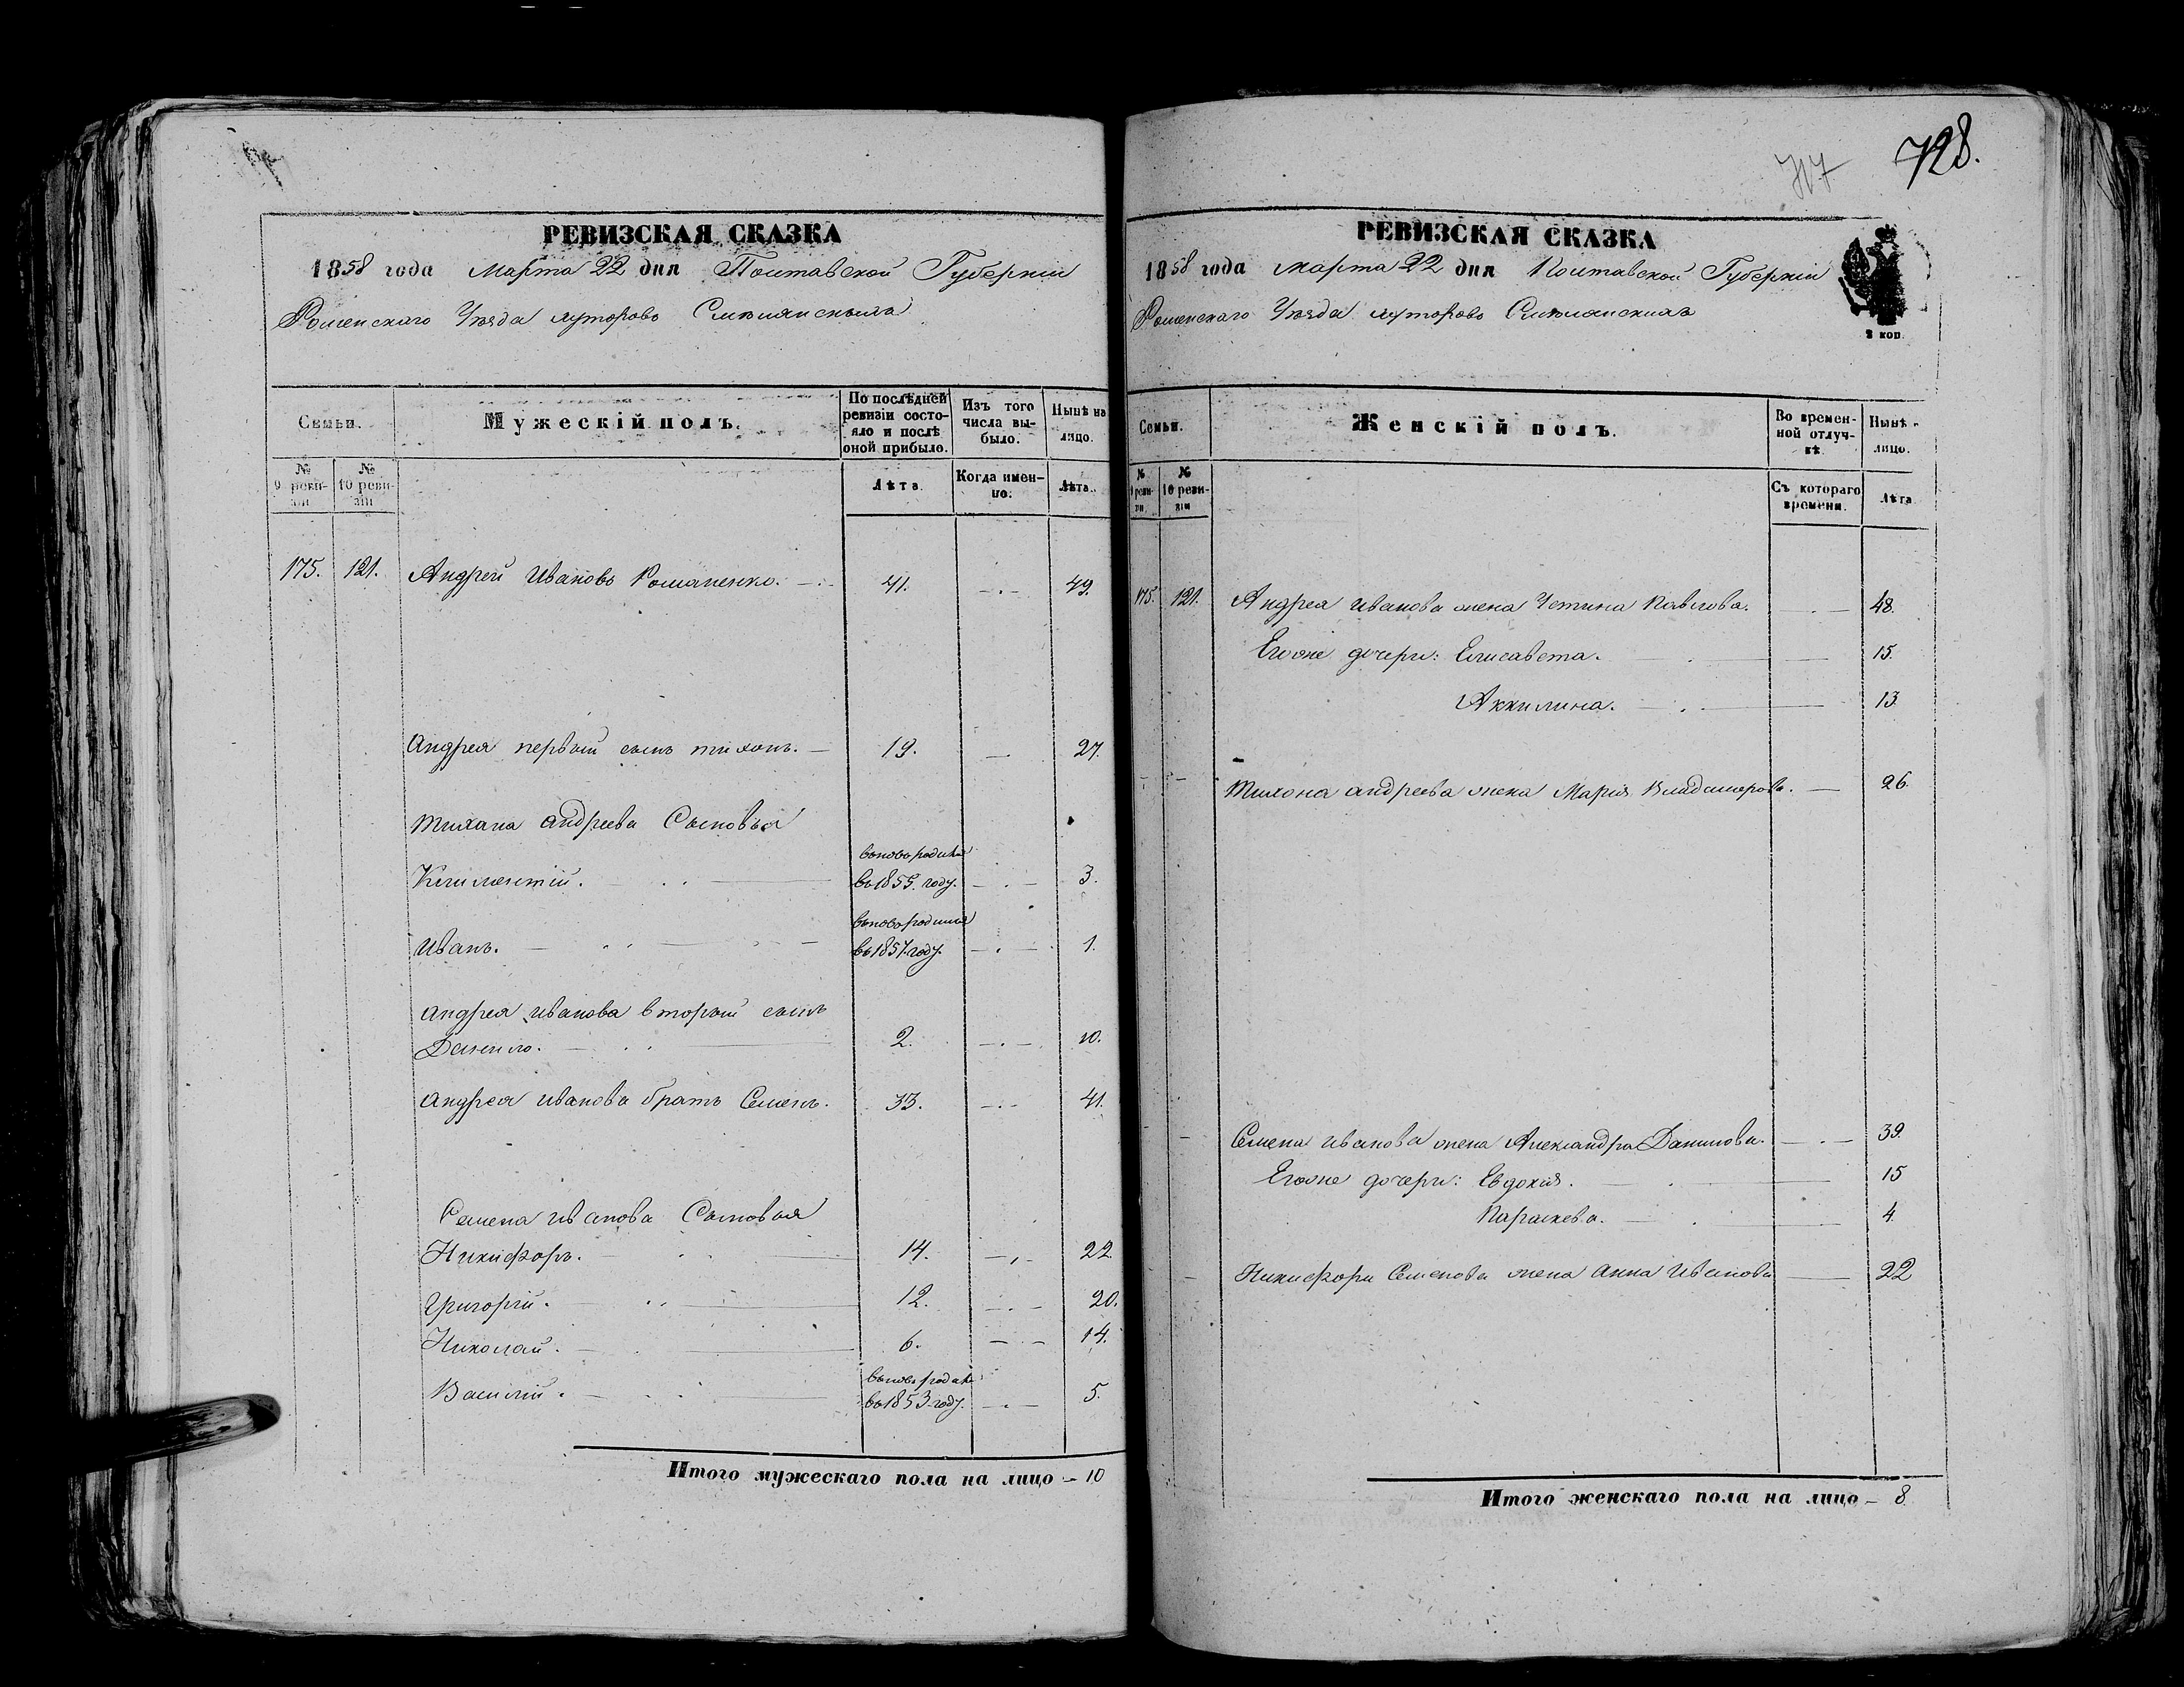 РЕВИЗСКАЯ СКАЗКА
1858 года марта 22 дня Полтавской Губерніи
Роменскаго Уѣзда хуторовъ
Семьи.
Мужескій полъ.
По послѣдней ревизіи состояло и послѣ оной прибыло.
Изъ того числа выбыло.
Нынѣ на лицо.
№ 9 ревизіи
№ 10 ревизіи
Лѣта.
Когда именно.
Лѣта.
175. 121. Андрей Ивановъ Романенко. 41. 49.
Андрея первый сынъ тихонъ. 19. 27.
Тихана андреева Сыновья
вновь родился
Климентій. въ 1855. году. 3.
вновь родился
Иванъ. въ 1857. году. 1.
андрея иванова вторый сынъ
Данило. 2. 10.
андрея иванова братъ Семенъ. 33. 41.
Семена иванова Сыновья
Никифоръ. 14. 22.
Григорій. 12. 20.
Николай. 6. 14.
вновь родил.
Василій. въ 1853 году. 5.
Итого мужескаго пола на лицо 10
717 728.
РЕВИЗСКАЯ СКАЗКА
1858 года марта 22 дня Полтавской Губерніи
Роменскаго Уѣзда хуторовъ
2 коп.
Семьи.
Женскій полъ.
Во временной отлучкѣ.
Нынѣ лицо.
№ 9 ревизіи
№ 10 ревизіи
Съ котораго времени.
Лѣта
175. 121. Андрея иванова жена Устина Павлова. 48.
Егоже дочери: Елисавета. 15.
Аккилина. 13.
Тихона андреева жена Марія 26.
Семена иванова жена Александра Данилова. 39.
Егоже дочери: Евдокія. 15
Параскева. 4.
Никифора Семенова жена Анна Иванова 22
Итого женскаго пола на лицо 8.